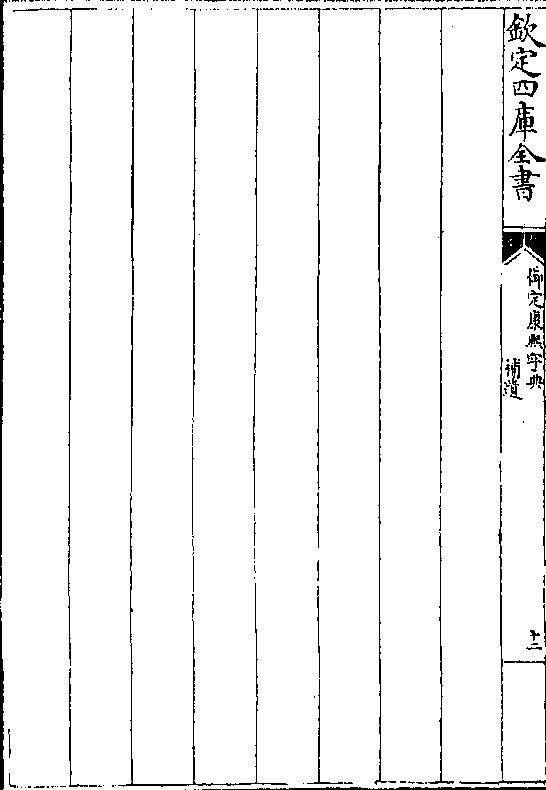 欽定四庫全書
御定康熙字典
補遺
十二